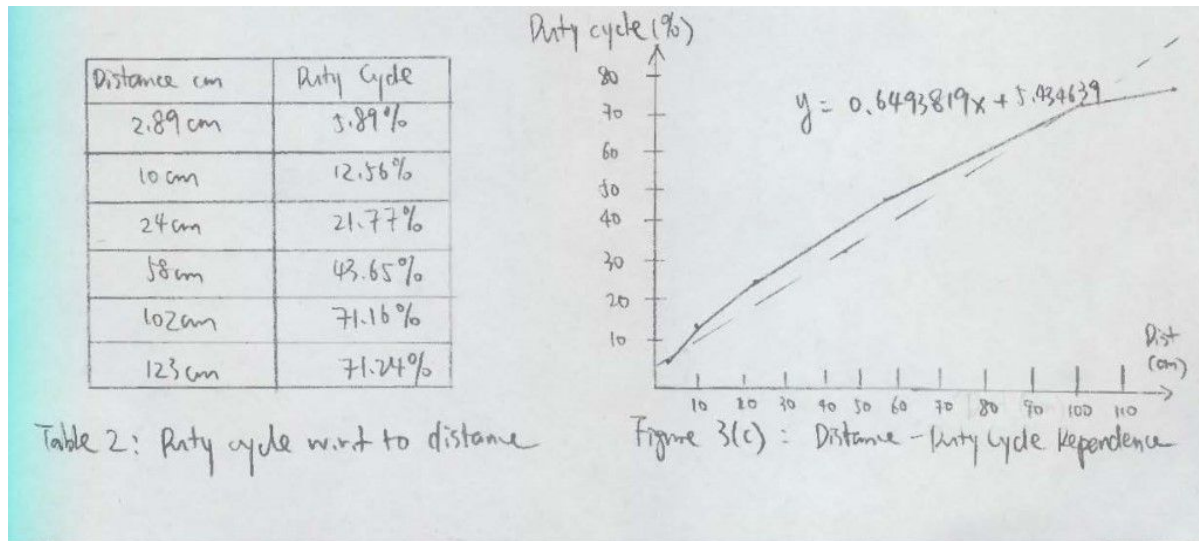 Distance cm Duty Cycle
2.89 cm 5.89%
10 cm 12.56%
24 cm 21.77%
58 cm 43.65%
102 cm 71.16%
123 cm 71.24%
Table 2: Duty cycle w.r.t to distance
Duty cycle (%)
80
70
60
50
40
30
20
10
y = 0.6493819x + 5.434639
Dist
(cm)
10 20 30 40 50 60 70 80 90 100 110
Figure 3(c) : Distance - Duty Cycle Dependence